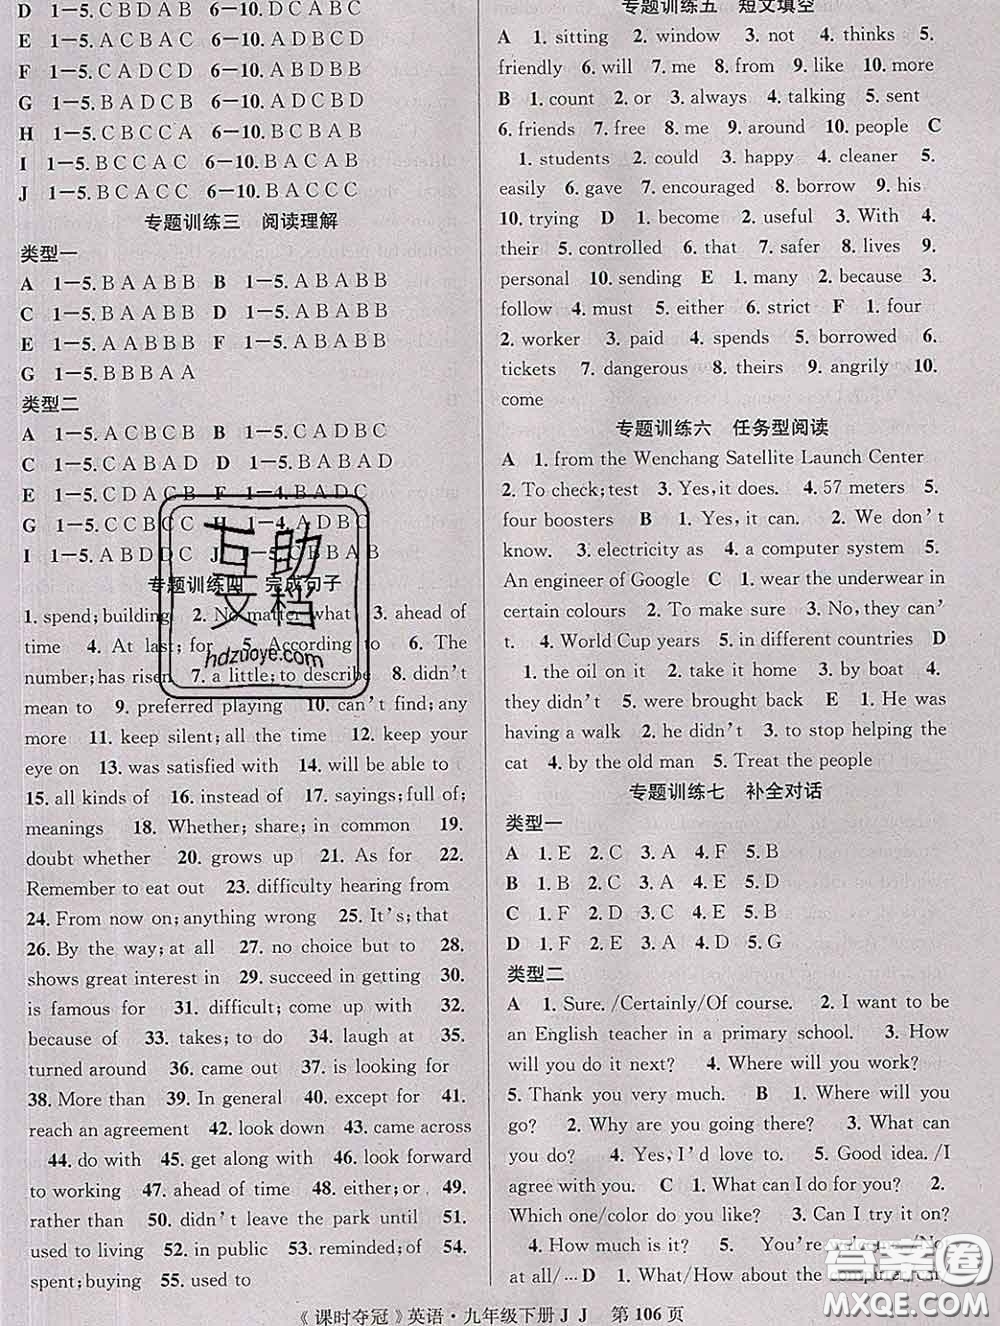 D 1—5. C B D A B 6—10. D C A B C
E 1—5. A C B A C 6—10. A D B C D
F 1—5. C A D C D 6—10. A B D B B
G 1—5. B A D C B 6—10. A C D A B
H 1—5. C B C C A 6—10. B C B A B
I 1—5. B C C A C 6—10. B A C A B
J 1—5. B C A C C 6—10. B A C C C
专题训练三 阅读理解
类型一
A 1—5. B A A B B B 1—5. A B A B B
C 1—5. B A A B B D 1—5. A B A B B
E 1—5. A A B B B F 1—5. A B A B B
G 1—5. B B B A A
类型二
A 1—5. A C B C B B 1—5. C A D B C
C 1—5. C A B A D D 1—5. B A B A D
E 1—5. C D A C B F 1—5. B A D C
G 1—5. C C B C C H 1—4. C A B D
I 1—5. A B D D C J 1—5. C B B A B
专题训练四 完成句子
1. spend; building 2. No matter what 3. ahead of
time 4. At last; for 5. According to 6. The
number; has risen 7. a little; to describe 8. didn't
mean to 9. preferred playing 10. can't find; any
more 11. keep silent; all the time 12. keep your
eye on 13. was satisfied with 14. will be able to
15. all kinds of 16. instead of 17. are full of;
meanings 18. Whether; share; in common 19.
doubt whether 20. grows up 21. As for 22.
Remember to eat out 23. difficulty hearing from
24. From now on; anything wrong 25. It's; that
26. By the way; at all 27. no choice but to 28.
shows great interest in 29. succeed in getting 30.
is famous for 31. difficult; come up with 32.
because of 33. takes; to do 34. laugh at 35.
turned around 36. came out 37. is looking for
38. More than 39. In general 40. except for 41.
reach an agreement 42. look down 43. came across
44. do with 45. get along with 46. look forward
to working 47. ahead of time 48. either; or 49.
rather than 50. didn't leave the park until 51.
used to living 52. in public 53. reminded; of 54.
spent; buying 55. used to
专题训练五 短文填空
A 1. sitting 2. window 3. not 4. thinks 5.
friendly 6. will 7. me 8. from 9. like 10. more
B 1. count 2. or 3. always 4. talking 5. sent
6. friends 7. free 8. me 9. around 10. people C
1. students 2. could 3. happy 4. cleaner 5.
easily 6. gave 7. encouraged 8. borrow 9. his
10. trying D 1. become 2. useful 3. With 4.
their 5. controlled 6. that 7. safer 8. lives 9.
personal 10. sending E 1. many 2. because 3.
follow 4. must 5. either 6. strict F 1. four
2. worker 3. paid 4. spends 5. borrowed 6.
tickets 7. dangerous 8. theirs 9. angrily 10.
come
专题训练六 任务型阅读
A 1. from the Wenchang Satellite Launch Center
2. To check; test 3. Yes, it does. 4. 57 meters 5.
four boosters B 1. Yes, it can. 2. We don't
know. 3. electricity as 4. a computer system 5.
An engineer of Google C 1. wear the underwear in
certain colours 2. To make sure 3. No, they can'
t. 4. World Cup years 5. in different countries D
1. the oil on it 2. take it home 3. by boat 4.
they didn't 5. were brought back E 1. He was
having a walk 2. he didn't 3. to stop helping the
cat 4. by the old man 5. Treat the people
专题训练七 补全对话
类型一
A 1. E 2. C 3. A 4. F 5. B
B 1. B 2. C 3. A 4. E 5. D
C 1. C 2. F 3. A 4. E 5. B
D 1. B 2. C 3. A 4. D 5. G
类型二
A 1. Sure. /Certainly/Of course. 2. I want to be
an English teacher in a primary school. 3. How
will you do it next? 4. Where will you work?
5. Thank you very much. B 1. Where will you
go? 2. Why are you going there? 3. What can
you do? 4. Yes, I'd love to. 5. Good idea. /I
agree with you. C 1. What can I do for you? 2.
Which one/color do you like? 3. Can I try it on?
4. How much is it? 5. You're welcome. /Not
at all/… D 1. What/How about the computer fan/
《课时夺冠》英语·九年级下册 J J 第 106 页
互助
文档
hdzuoye.com
答案圈
MXQE.COM